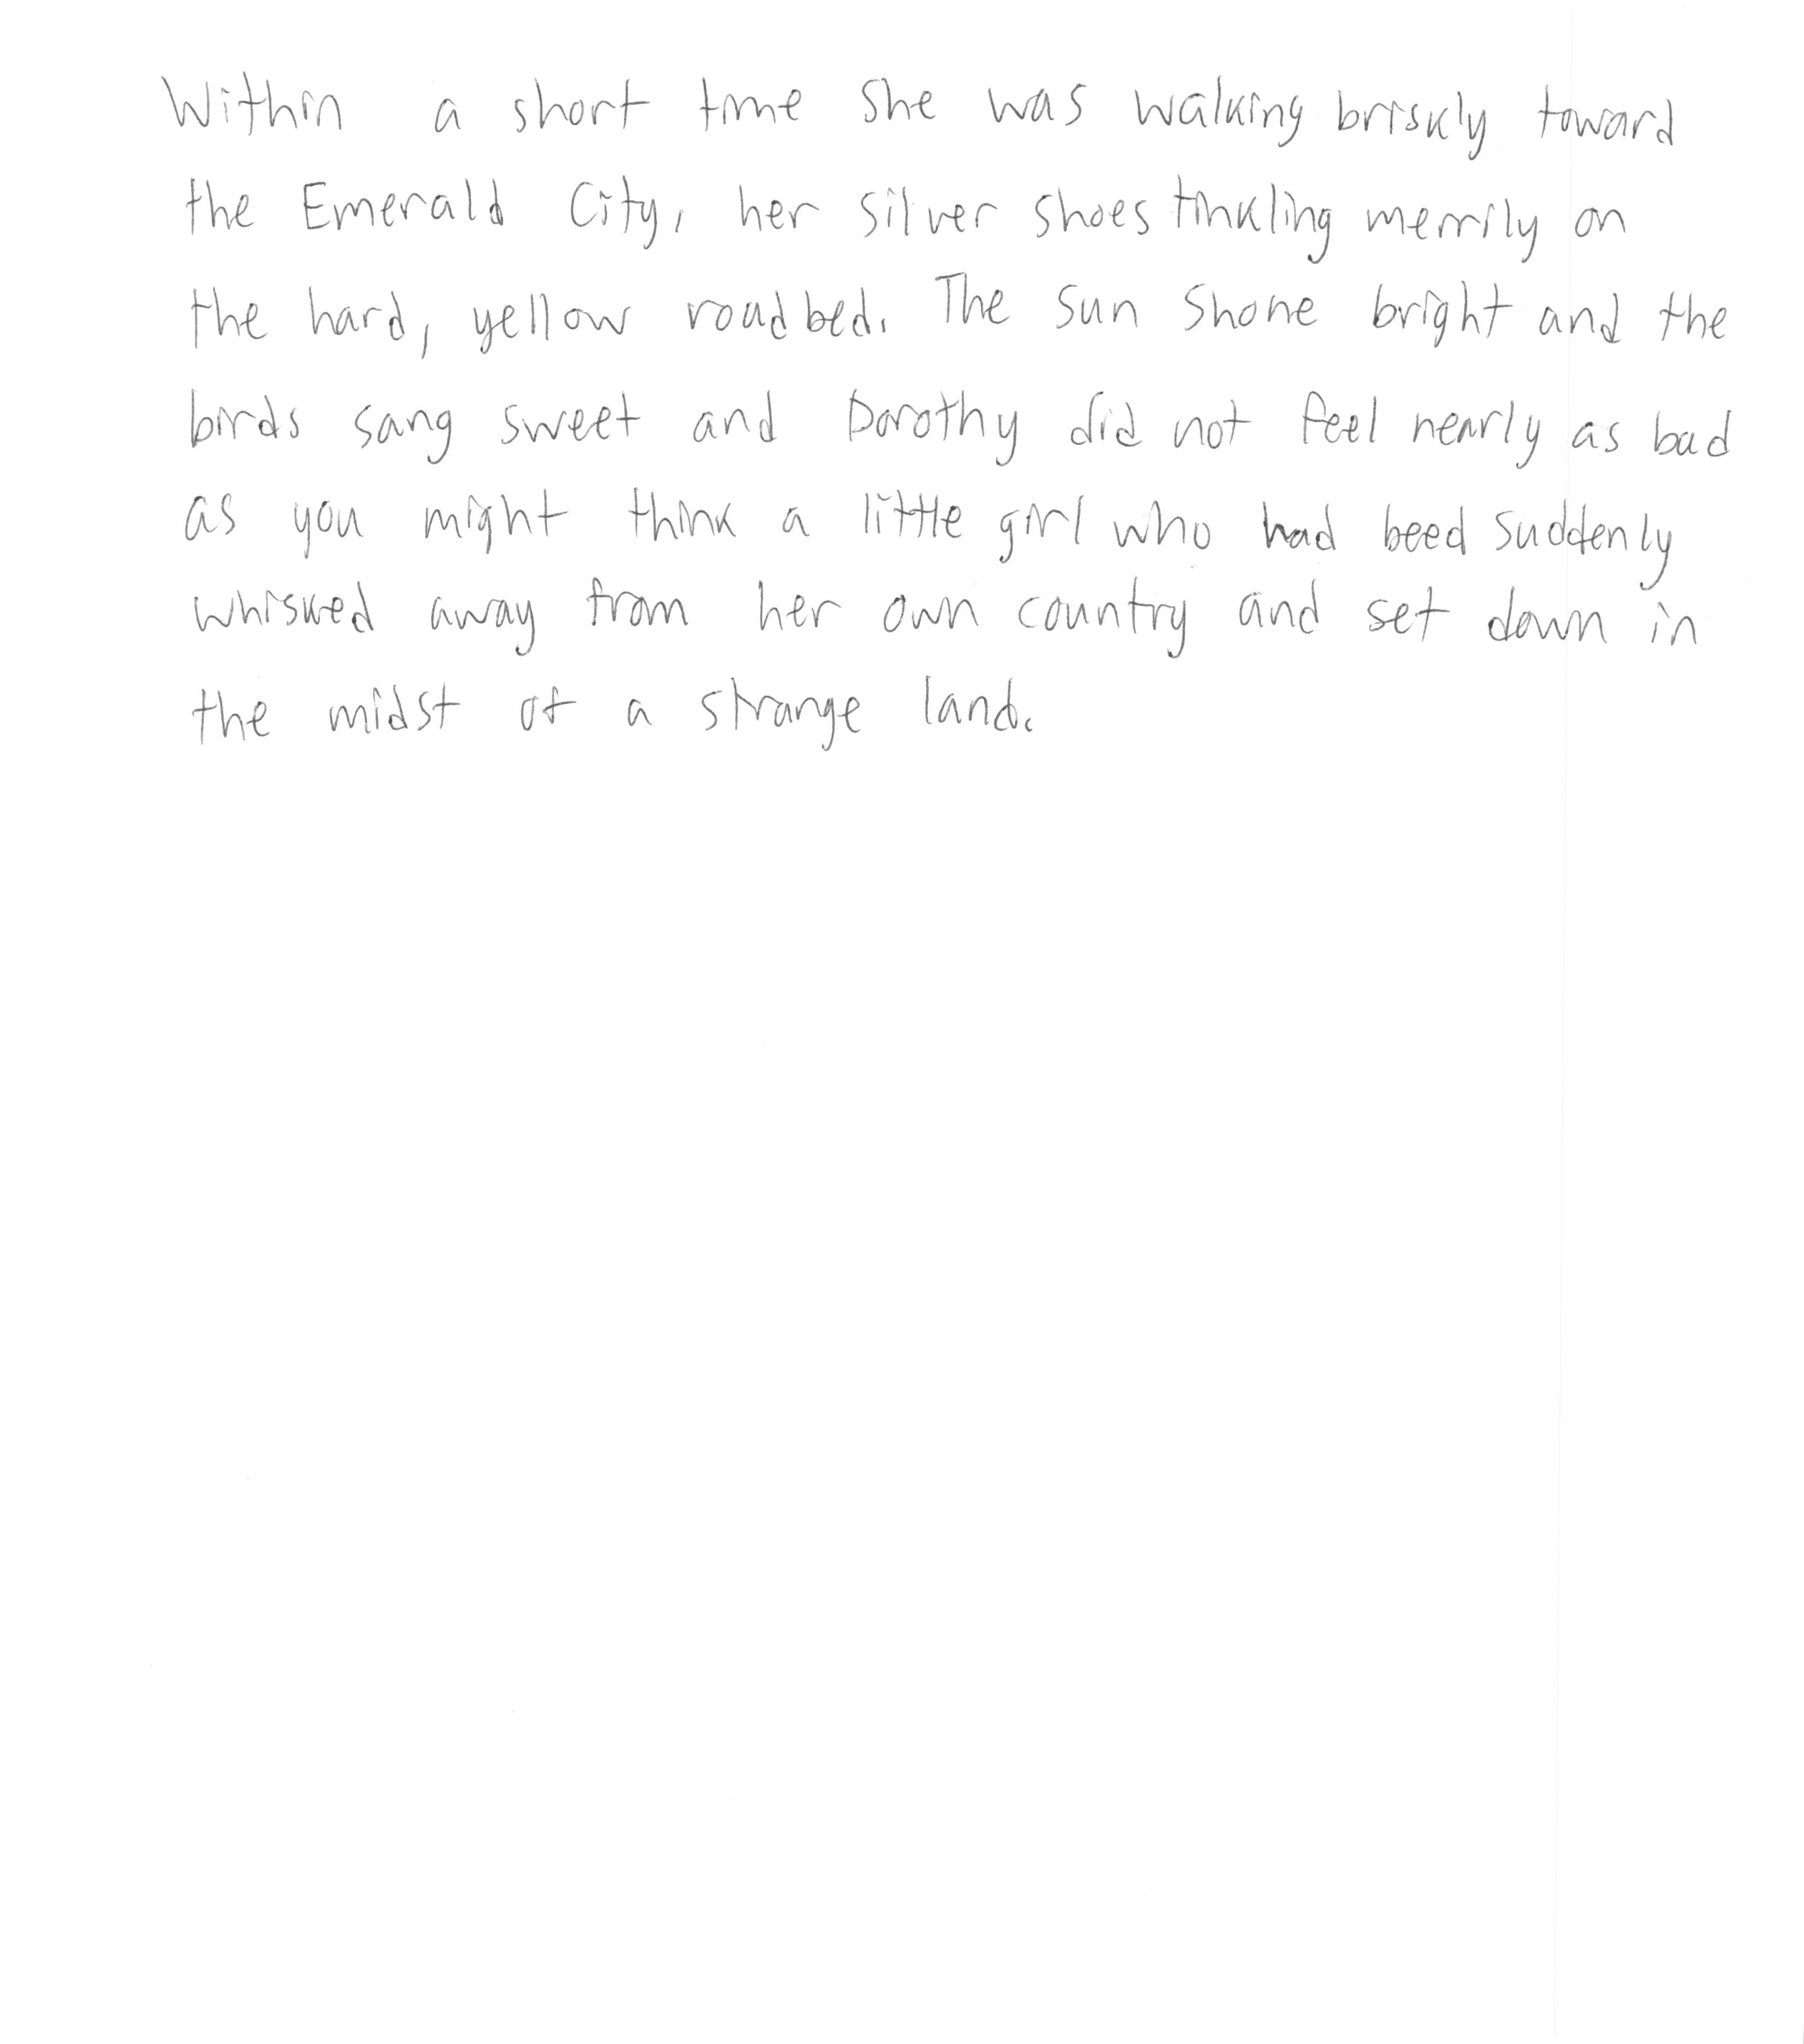 Within a short time she was walking briskly toward
the Emerald City, her silver shoes tinkling merrily on
the hard, yellow roadbed. The sun shone bright and the
birds sang sweet and Dorothy did not feel nearly as bad
as you might think a little girl who had beed suddenly
whisked away from her own country and set down in
the midst of a strange land.